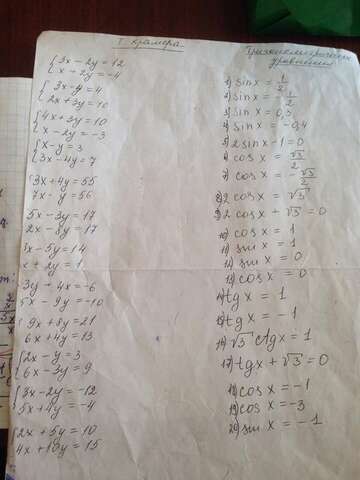 Т. Крамера
3x - 2y = 12
x - 2y = -4
3x - y = 4
2x + 3y = 10
4x + 3y = 10
x - 2y = -3
x - y = 3
3x - 4y = 7
3x + 4y = 55
7x - y = 56
5x - 3y = 17
2x - 8y = 17
x - 5y = 14
x + 2y = 1
3y + 4x = -6
5x - 9y = -10
9x + 8y = 21
6x + 4y = 13
2x - y = 3
6x - 3y = 9
3x - 2y = -12
5x + 4y = -4
2x + 5y = 10
4x + 10y = 15
Тригонометрические
уравнения
1) sin x = 1/2
2) sin x = -1/2
3) sin x = 0,5
4) sin x = -0,4
5) 2 sin x - 1 = 0
6) cos x = √3/2
7) cos x = -√3/2
8) 2 cos x = √3
9) 2 cos x + √3 = 0
10) cos x = 1
11) sin x = 1
12) sin x = 0
13) cos x = 0
14) tg x = 1
15) tg x = -1
16) √3 ctg x = 1
17) tg x + √3 = 0
18) cos x = -1
19) cos x = -3
20) sin x = -1